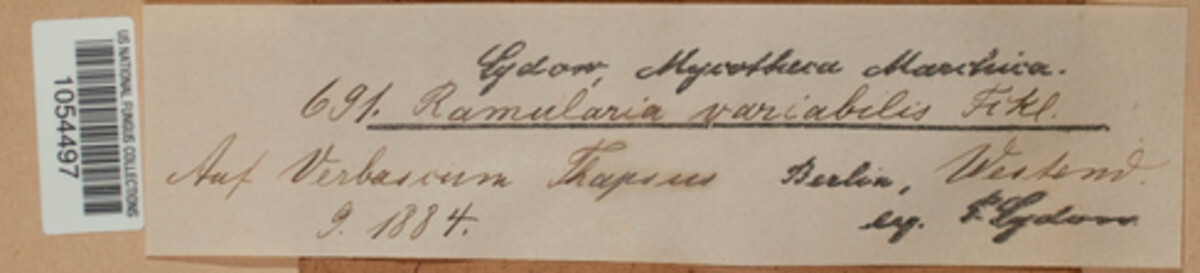 US NATIONAL FUNGUS COLLECTIONS
1054497
Sydow, Mycotheca Marchica.
691. Ramularia variabilis Fckl.
Auf Verbascum Thapsus Berlin, Westend.
9. 1884. leg. P. Sydow